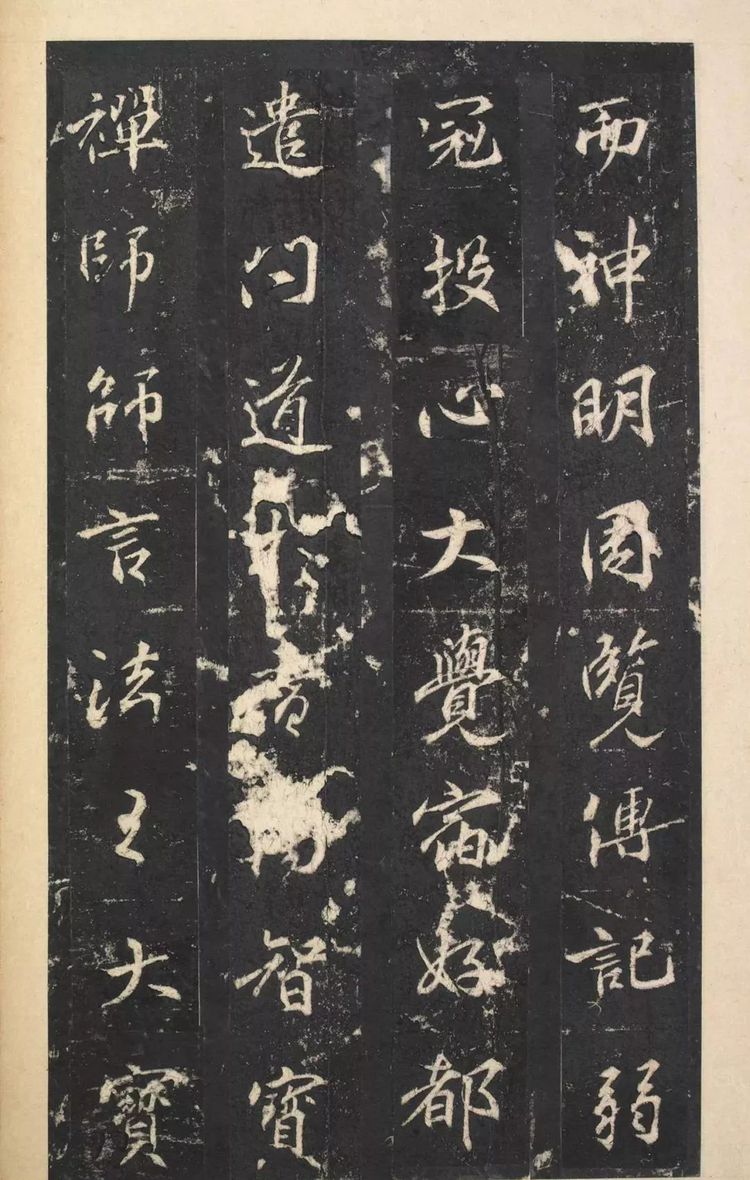 而神明周覽傳記弱
冠投心大覺宿好都
遣問道智寶
禪師師言法王大寶